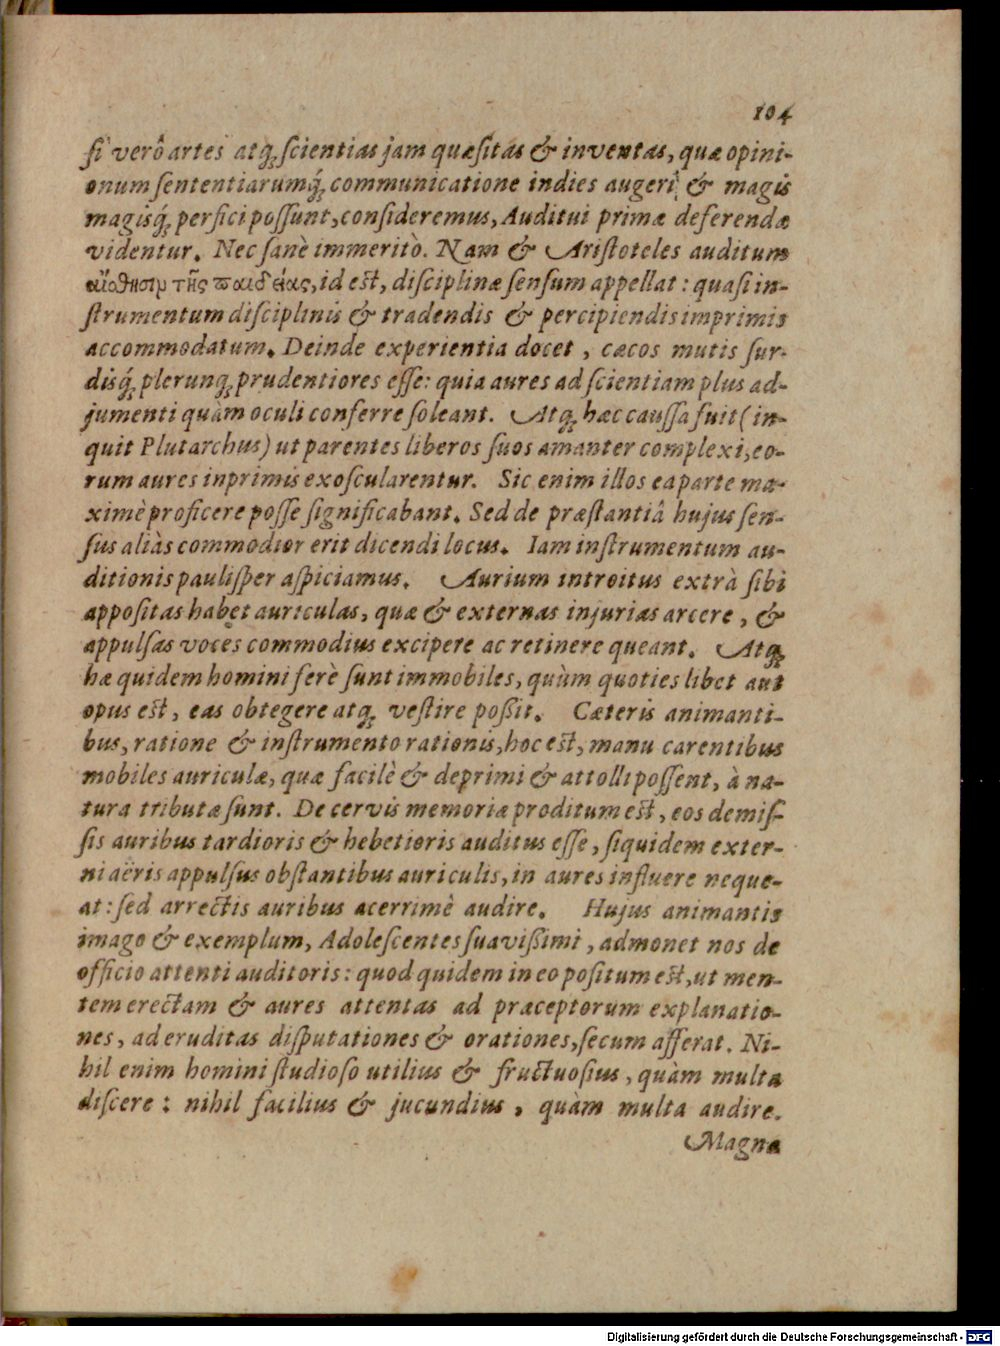 104
ſi verò artes atq́; ſcientias jam quæſitas & inventas, quæ opini-
onum ſententiarumq́; communicatione indies augeri & magis
magisq́; perfici poſſunt, conſideremus, Auditui primæ deferendæ
videntur. Nec ſanè immeritò. Nam & Ariſtoteles auditum
αἴσθησιν τῆς παιδείας, id eſt, diſciplinæ ſenſum appellat: quaſi in-
ſtrumentum diſciplinis & tradendis & percipiendis imprimis
accommodatum. Deinde experientia docet, cæcos mutis ſur-
disq́; plerunq; prudentiores eſſe: quia aures ad ſcientiam plus ad-
jumenti quàm oculi conferre ſoleant. Atq; hæc cauſſa fuit (in-
quit Plutarchus) ut parentes liberos ſuos amanter complexi, eo-
rum aures inprimis exoſcularentur. Sic enim illos ea parte ma-
ximè proficere poſſe ſignificabant. Sed de præſtantiâ hujus ſen-
ſus aliàs commodior erit dicendi locus. Iam inſtrumentum au-
ditionis pauliſper aſpiciamus. Aurium introitus extrà ſibi
appoſitas habet auriculas, quæ & externas injurias arcere, &
appulſas voces commodius excipere ac retinere queant. Atq;
hæ quidem homini ferè ſunt immobiles, quùm quoties libet aut
opus eſt, eas obtegere atq; veſtire poßit. Cæteris animanti-
bus, ratione & inſtrumento rationis, hoc eſt, manu carentibus
mobiles auriculæ, quæ facilè & deprimi & attolli poſſent, à na-
tura tributæ ſunt. De cervis memoriæ proditum eſt, eos demiſ-
ſis auribus tardioris & hebetioris auditus eſſe, ſiquidem exter-
ni aëris appulſus obſtantibus auriculis, in aures influere neque-
at: ſed arrectis auribus acerrimè audire. Hujus animantis
imago & exemplum, Adoleſcentes ſuavißimi, admonet nos de
officio attenti auditoris: quod quidem in eo poſitum eſt, ut men-
tem erectam & aures attentas ad præceptorum explanatio-
nes, ad eruditas diſputationes & orationes, ſecum afferat. Ni-
hil enim homini ſtudioſo utilius & fructuoſius, quàm multa
diſcere: nihil facilius & jucundius, quàm multa audire.
Magna
Digitalisierung gefördert durch die Deutsche Forschungsgemeinschaft - DFG